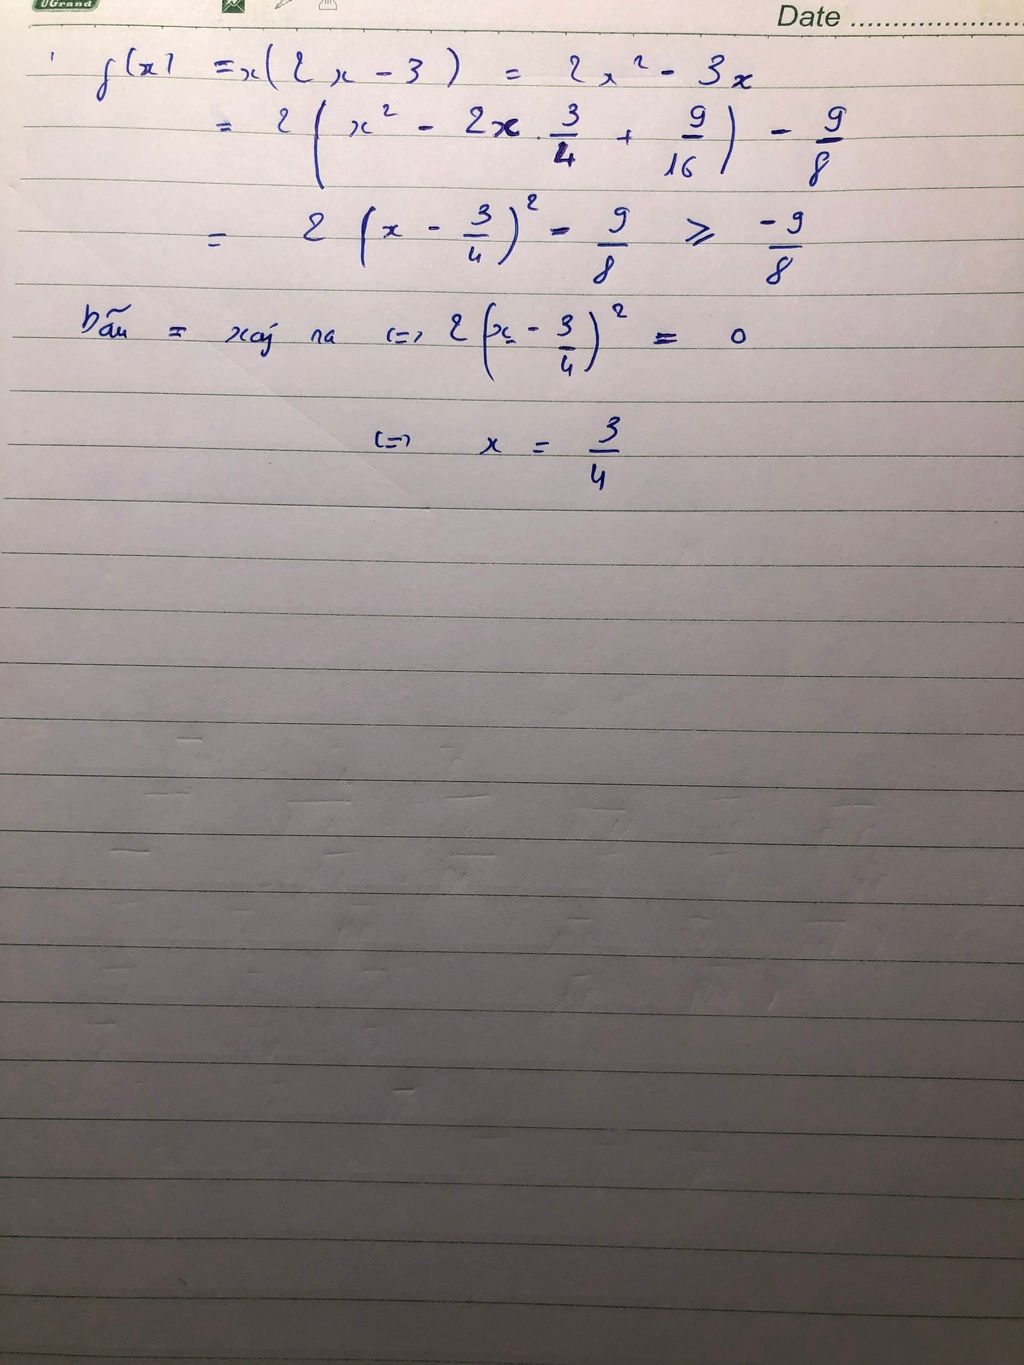 UGrand
Date ........................
f(x) = x(2x - 3) = 2x² - 3x
= 2(x² - 2x . 3/4 + 9/16) - 9/8
= 2(x - 3/4)² - 9/8 ⩾ -9/8
Dấu = xảy ra <=> 2(x - 3/4)² = 0
<=> x = 3/4